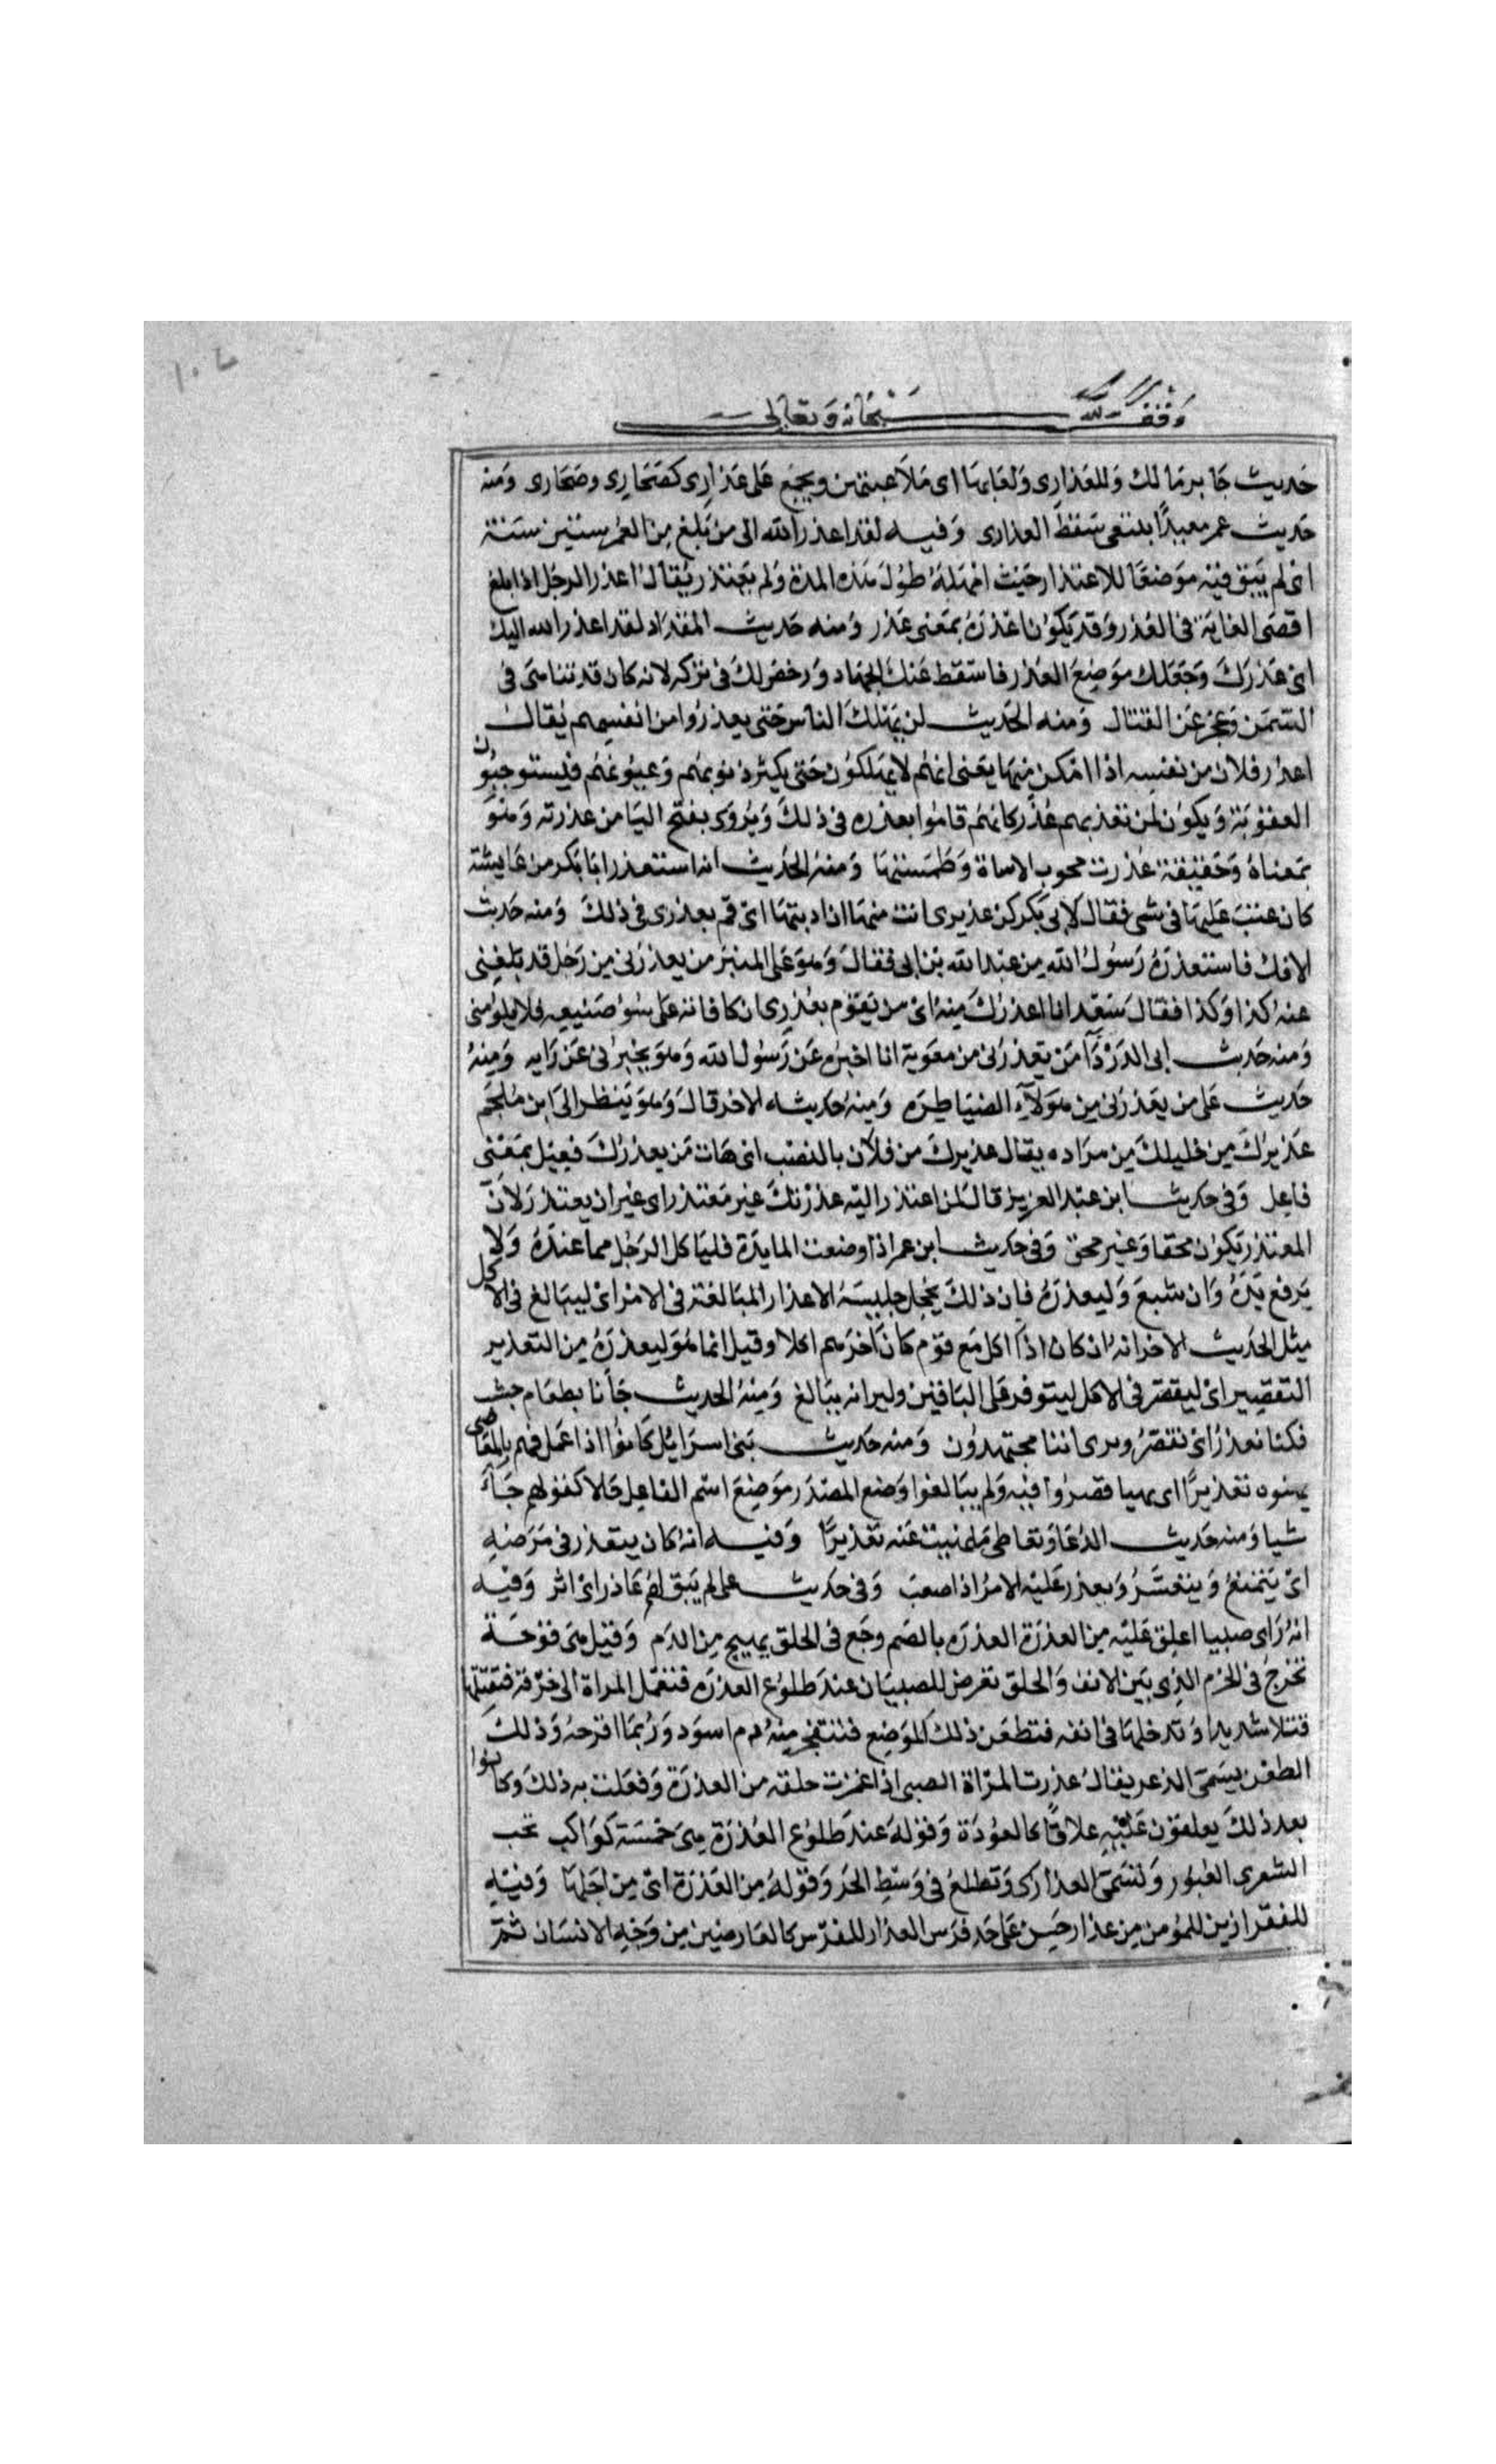 وقف لله سبحانه وتعالى
حديث جابر مالك وللعذارى ولعابها اى ملاعبتهن ويجمع على عذارى كصحارى وصحارى ومنه
حديث عمر معيدًا يبتغى سقط العذارى وفيه لقد اعذر الله الى من بلغ من العمر ستين سنة
اى لم يبق فيه موضعًا للاعتذار حيث امهله طول هذه المدة ولم يعتذر يقال اعذر الرجل اذا بلغ
اقصى الغاية فى العذر وقد يكون اعذره بمعنى عذر ومنه حديث المقداد لقد اعذر الله اليك
اى عذرك وجعلك موضع العذر فاسقط عنك الجهاد ورخص لك فى تركه لانه كان قد تناهى فى
السمن وعجز عن القتال ومنه الحديث لن يهلك الناس حتى يعذروا من انفسهم يقال
اعذر فلان من نفسه اذا امكن منها يعنى انهم لا يهلكون حتى يكثر ذنوبهم وعيوبهم فيستوجبون
العقوبة ويكون لمن تعذبهم عذر كانهم قاموا بعذره فى ذلك ويروى بفتح اليا من عذرته وهو
بمعناه وحقيقة عذرت محوت الاساة وطمستها ومنه الحديث انه استعذر ابا بكر من عايشة
كان عتب عليها فى شى فقال لابى بكر كن عذيرى انت منها ان ادبتها اى قم بعذرى فى ذلك ومنه حديث
الافك فاستعذر رسول الله من عبد الله بن ابى فقال وهو على المنبر من يعذرنى من رجل قد بلغنى
عنه كذا وكذا فقال سعد انا اعذرك منه اى من يقوم بعذرى ان كافاته على سو صنيعه فلا يلومنى
ومنه حديث ابى الدردآ من يعذرنى من معوية انا اخبره عن رسول الله وهو يخبرنى عن رايه ومنه
حديث على من يعذرنى من هولآء الضياطرة ومنه حديثه الاخر قال وهو ينظر الى ابن ملجم
عذيرك من خليلك من مراده يقال عذيرك من فلان بالنصب اى هات من يعذرك فعيل بمعنى
فاعل وفى حديث ابن عبد العزيز قال لمن اعتذر اليه عذرتك غير معتذر اى غير ان يعتذر لان
المعتذر يكون محقا وغير محق وفى حديث ابن عمر اذا وضعت المايدة فلياكل الرجل مما عنده ولا
يرفع يده وان شبع وليعذره فان ذلك يخجل جليسه الاعذار المبالغة فى الامر اى ليبالغ فى الاكل
مثل الحديث الاخر انه ان كان اذا اكل مع قوم كان اخرهم اكلا وقيل انما هو ليعذره من التعذير
التقصير اى ليقصر فى الاكل ليتوفر على الباقين وليرانه يبالغ ومنه الحديث جانا بطعام جشب
فكنا نعذر اى نقصر ونرى اننا مجتهدون ومنه حديث بنى اسرائل كانوا اذا عمل فهم بالمعاصى
نهوه تعذيرًا اى نهيا قصروا فيه ولم يبالغوا وضع المصدر موضع اسم الفاعل حالا كقولهم جآء
شيا ومنه حديث الدعا وتعاطى ما نهيت عنه تعذيرًا وفيه انه كان يتعذر فى مرضه
اى يتمنع ويتعسر وبعذر عليه الامر اذا صعب وفى حديث على لم يبق لهم عاذر اى اثر وفيه
انه راى صبيا اعلق عليه من العذرة العذره بالضم وجع فى الحلق يهيج من الدم وقيل هى قوحة
تخرج فى الخرم الذى بين الانف والحلق تعرض للصبيان عند طلوع العذره فتعمل المراة الى خرقة فتفتلها
فتلا شديدا وتدخلها فى انفه فتطعن ذلك الموضع فتنتفجر منه دم اسود وربما اقرحه وذلك
الطعن يسمى الذعر يقال عذرت المراة الصبى اذا غمزت حلقه من العذرة وفعلت به ذلك وكانوا
بعد ذلك يعلقون عليه علاقًا كالعوذة وقوله عند طلوع العذرة هى خمسة كواكب تحت
الشعرى العبور ولتسمى العذارى وتطلع فى وسط الحر وقوله من العذرة اى من اجلها وفيه
للفقر ازين للمومن من عذار حسن على خد فرس العذار للفرس كالعارضين من وجه الانسان ثم